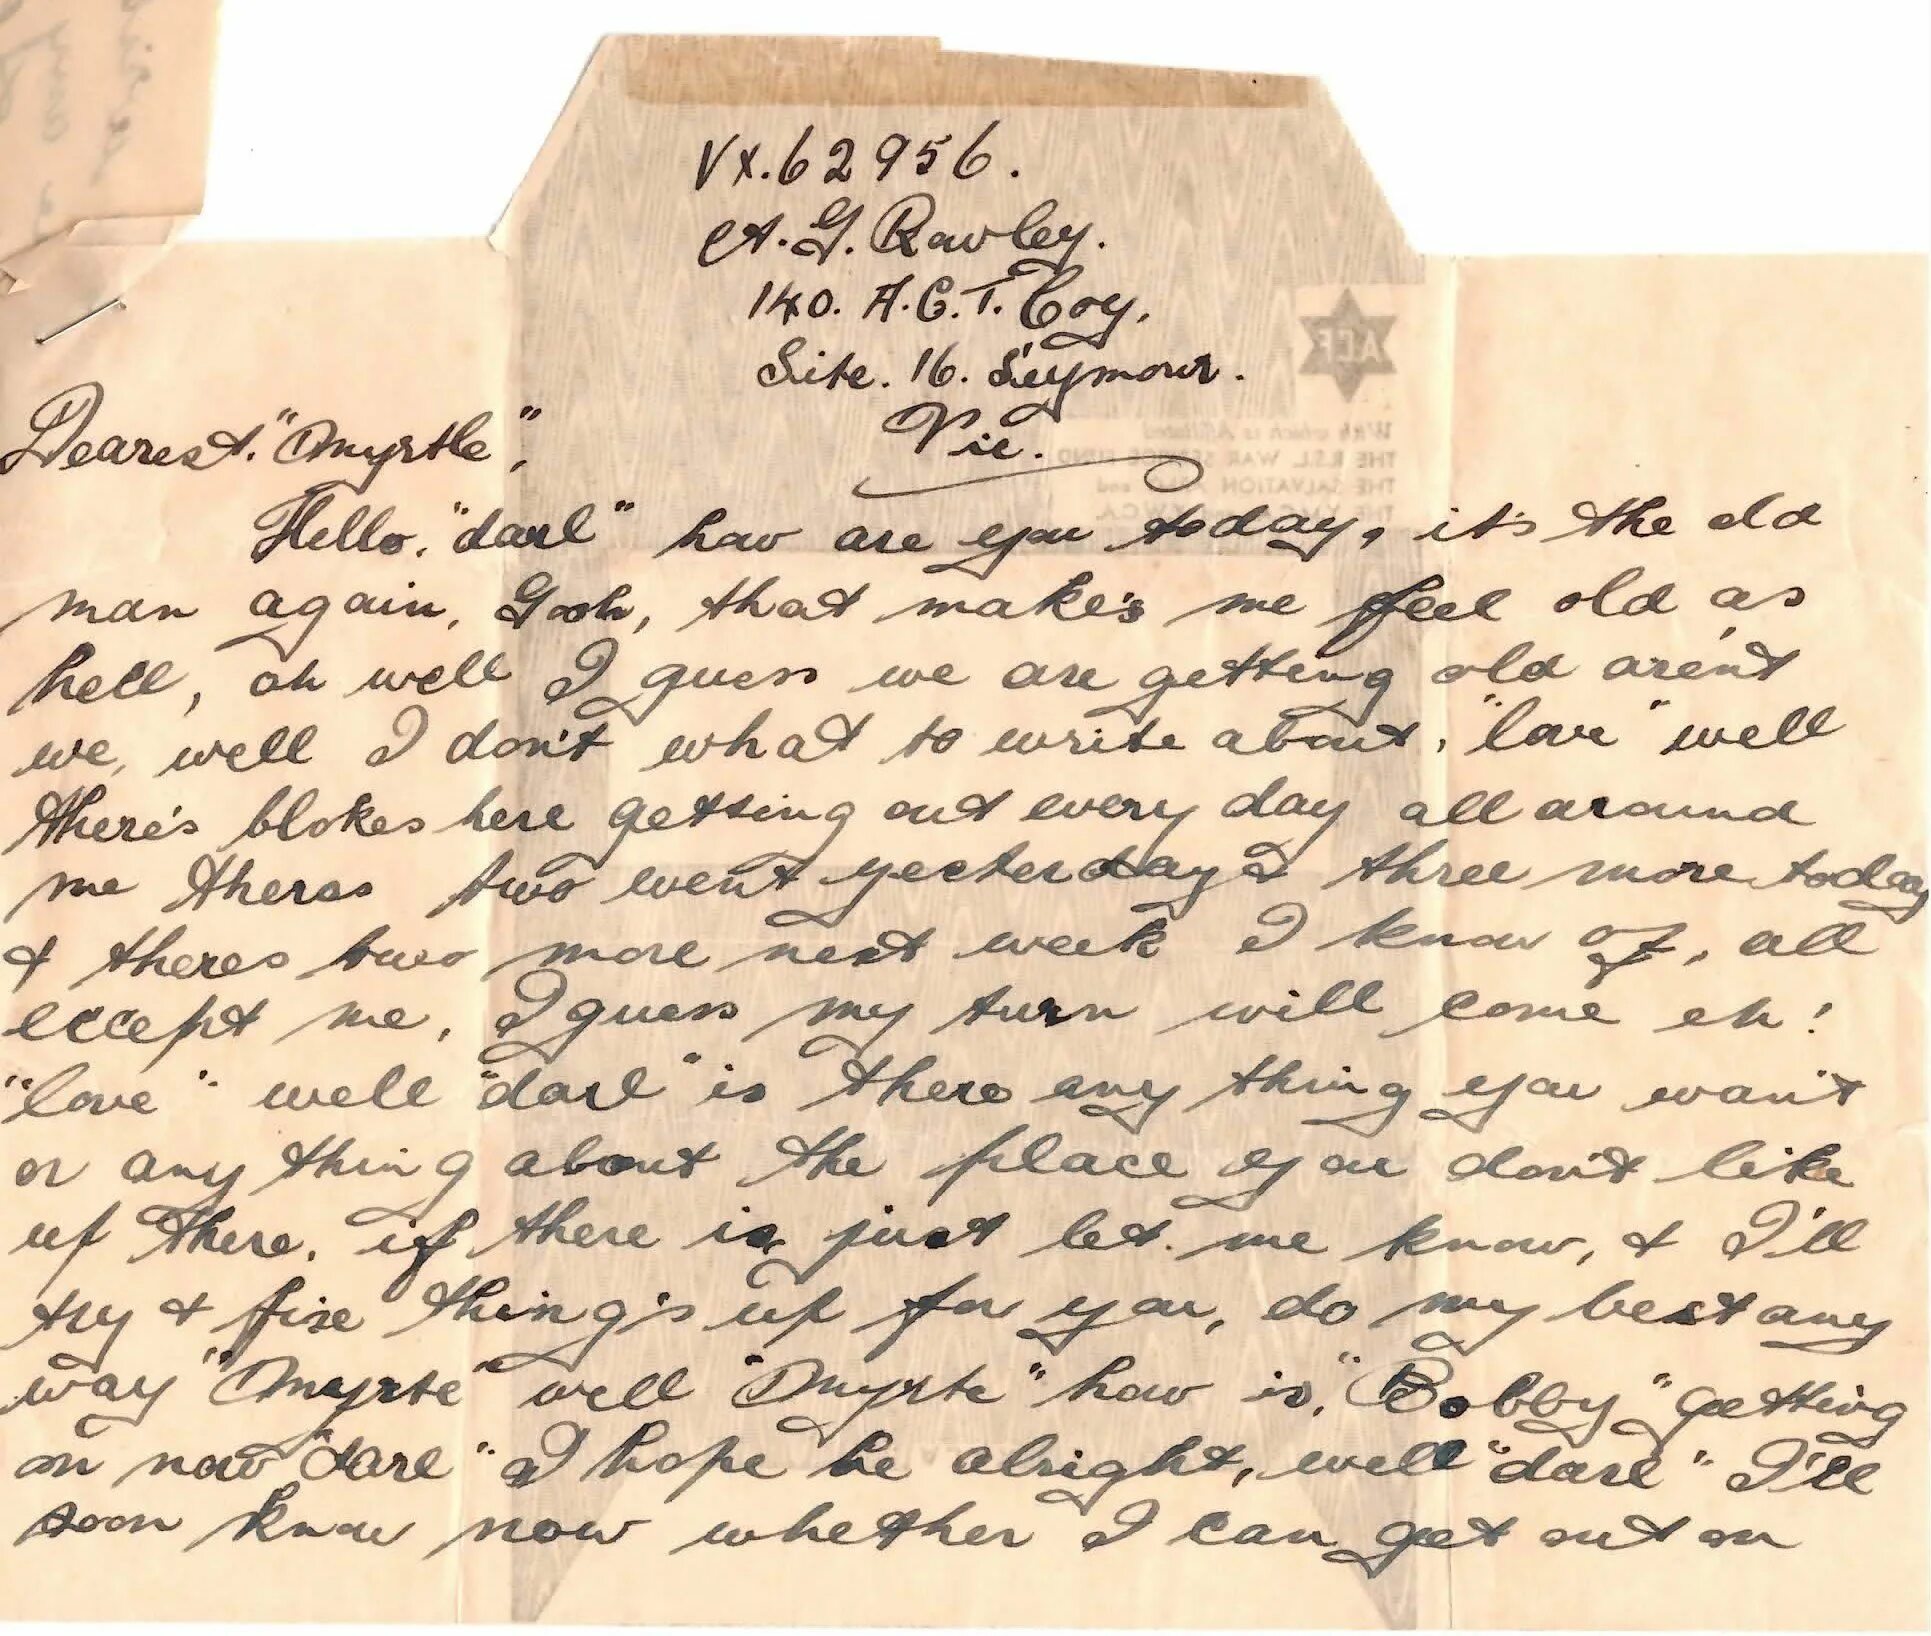 VX.62956.
A. G. Rawley.
140. A.C.T. Coy.
Site. 16. Seymour.
Vic.
Dearest. "Myrtle",
Hello. "darl" how are you today, it's the old
man again, Gosh, that make's me feel old as
hell, oh well I guess we are getting old are'nt
we, well I don't what to write about, "love" well
there's blokes here getting out every day all around
me theres two went yesterday & three more today
& theres two more next week I know of, all
except me, I guess my turn will come eh!
"love" well "darl" is there any thing you wan't
or any thing about the place you don't like
up there. if there is, just let me know, & I'll
try & fixe thing's up for you, do my best any
way "Myrtle" well "Myrtle" how is, "Bobby" getting
on now "darl" I hope he alright, well "darl" I'll
soon know now whether I can get out on
AEF
With which is Affiliated
THE R.S.L. WAR SERVICE FUND
THE SALVATION ARMY and